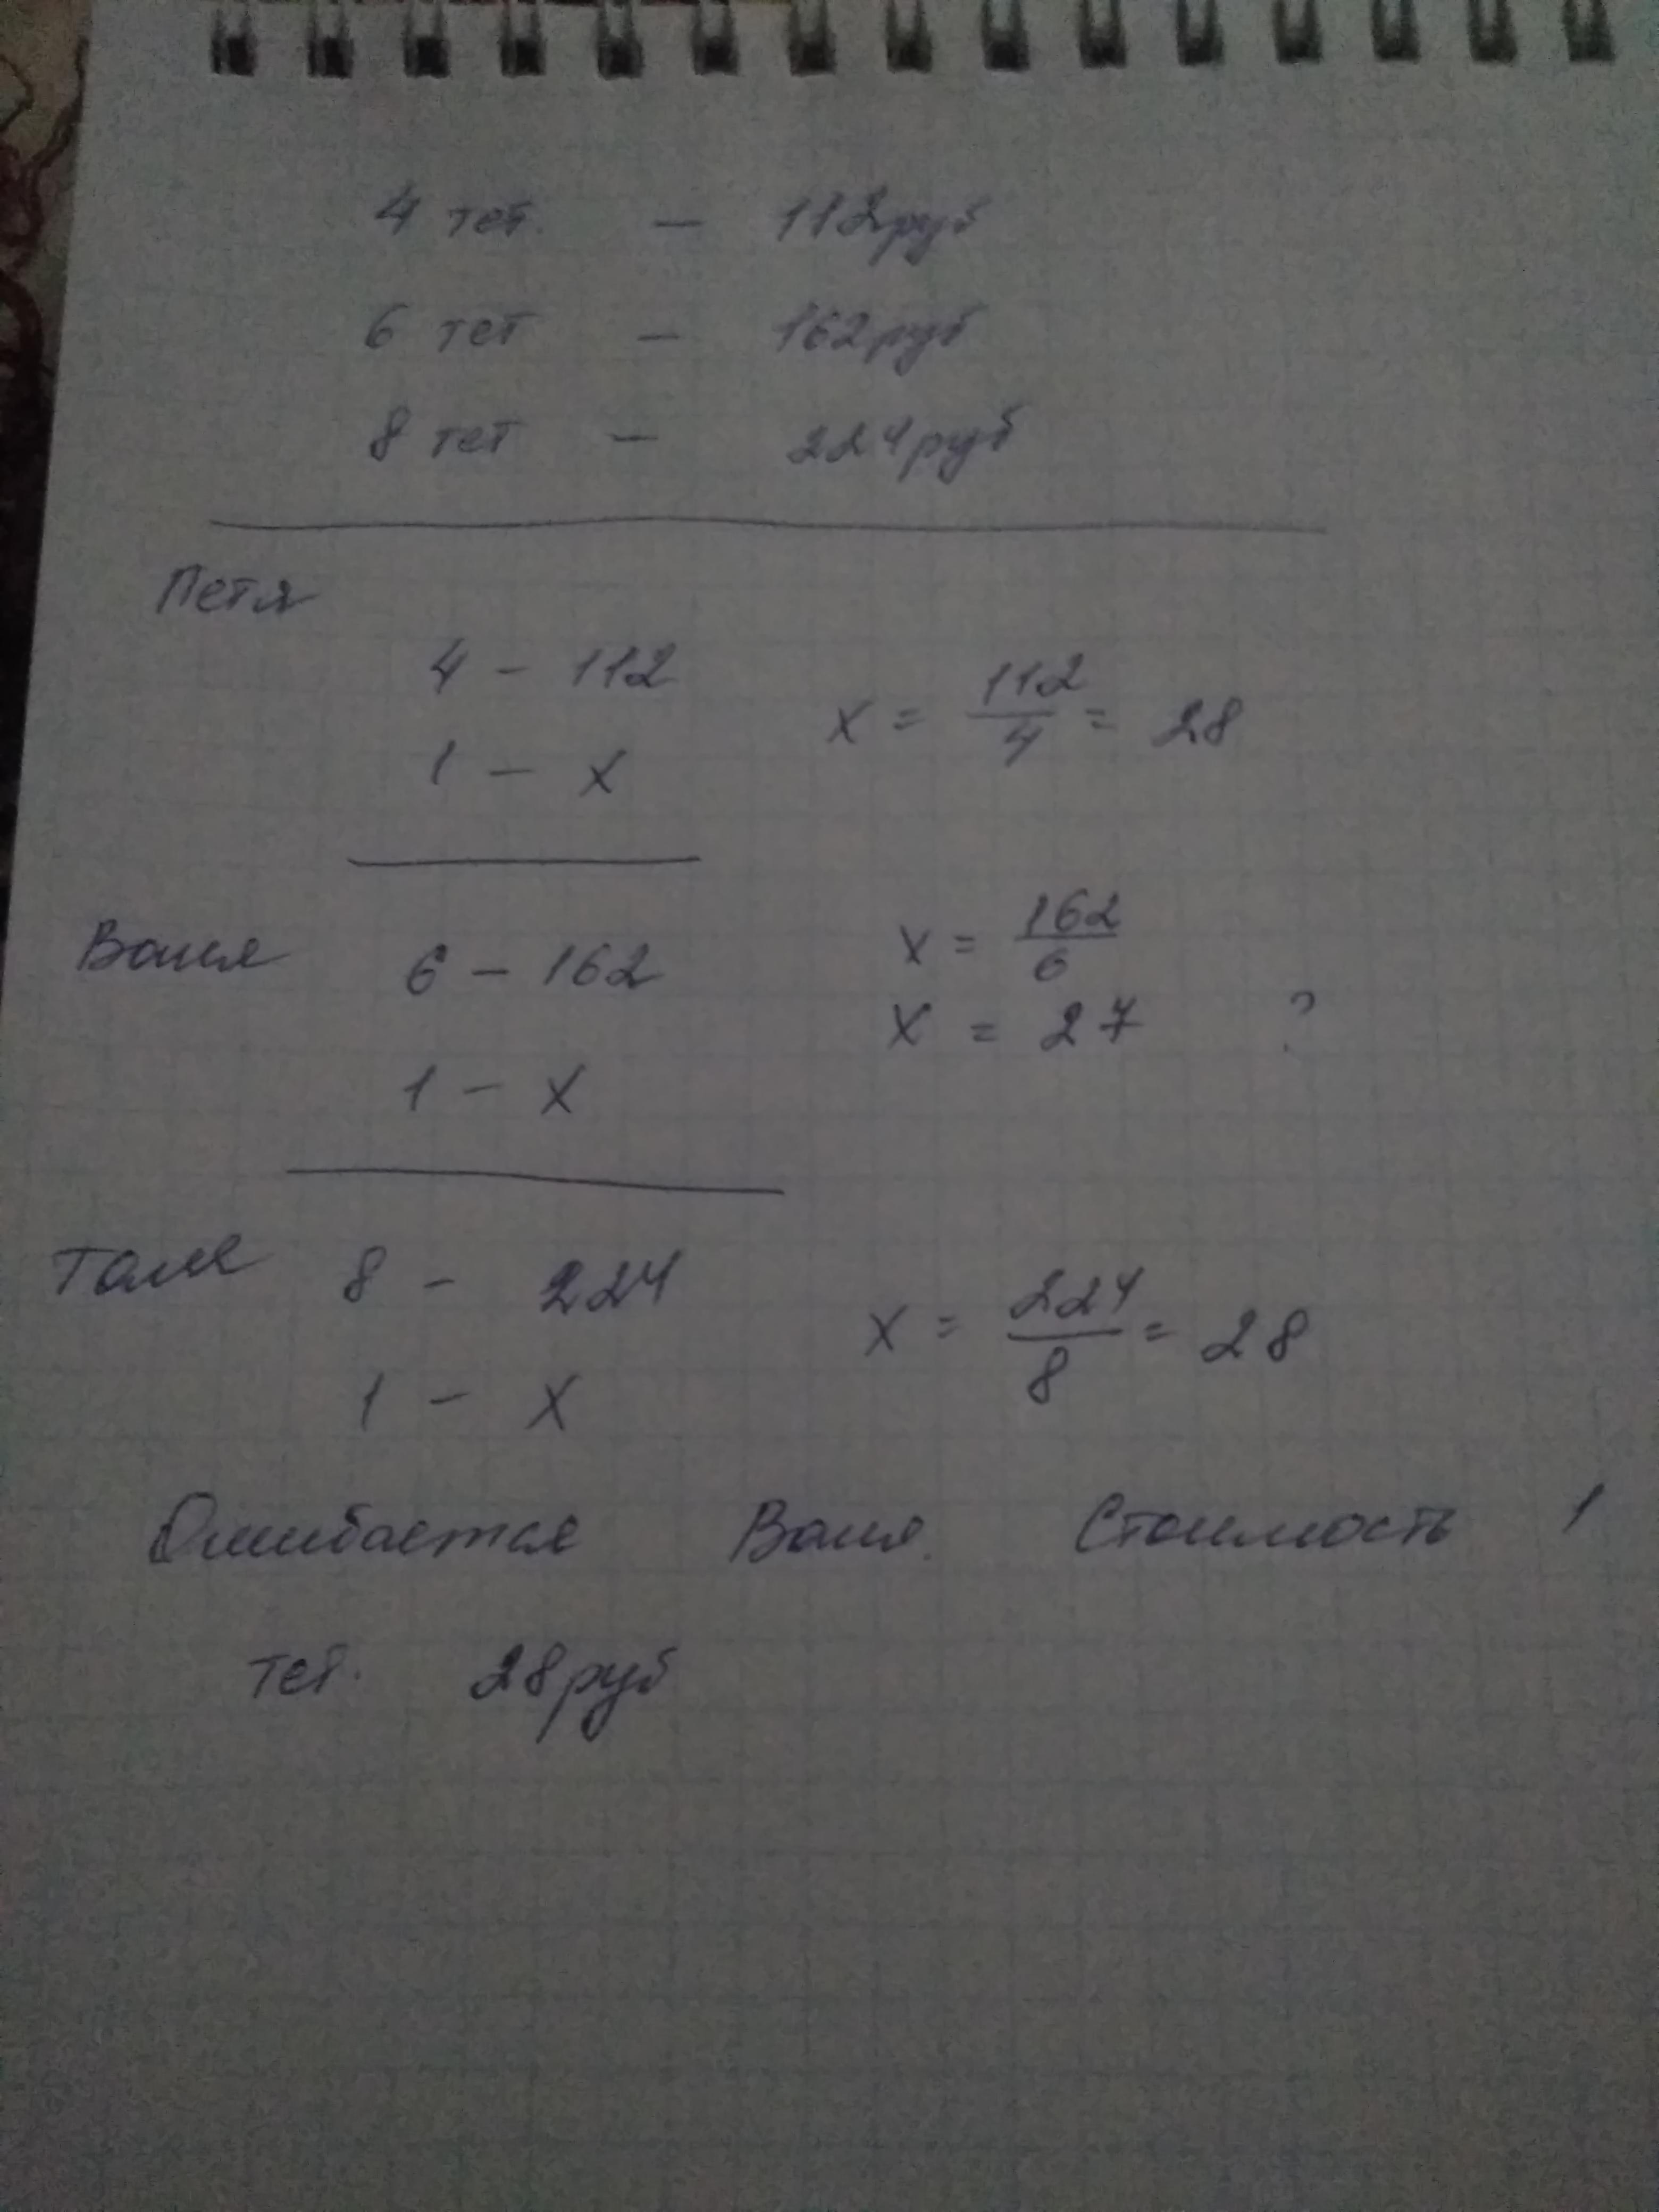 4 тет. — 112руб
6 тет — 162руб
8 тет — 224руб
Петя
4 — 112
1 — x
x = 112/4 = 28
Ваня
6 — 162
1 — x
x = 162/6
x = 27 ?
Толя
8 — 224
1 — x
x = 224/8 = 28
Ошибается Ваня. Стоимость 1
тет. 28руб